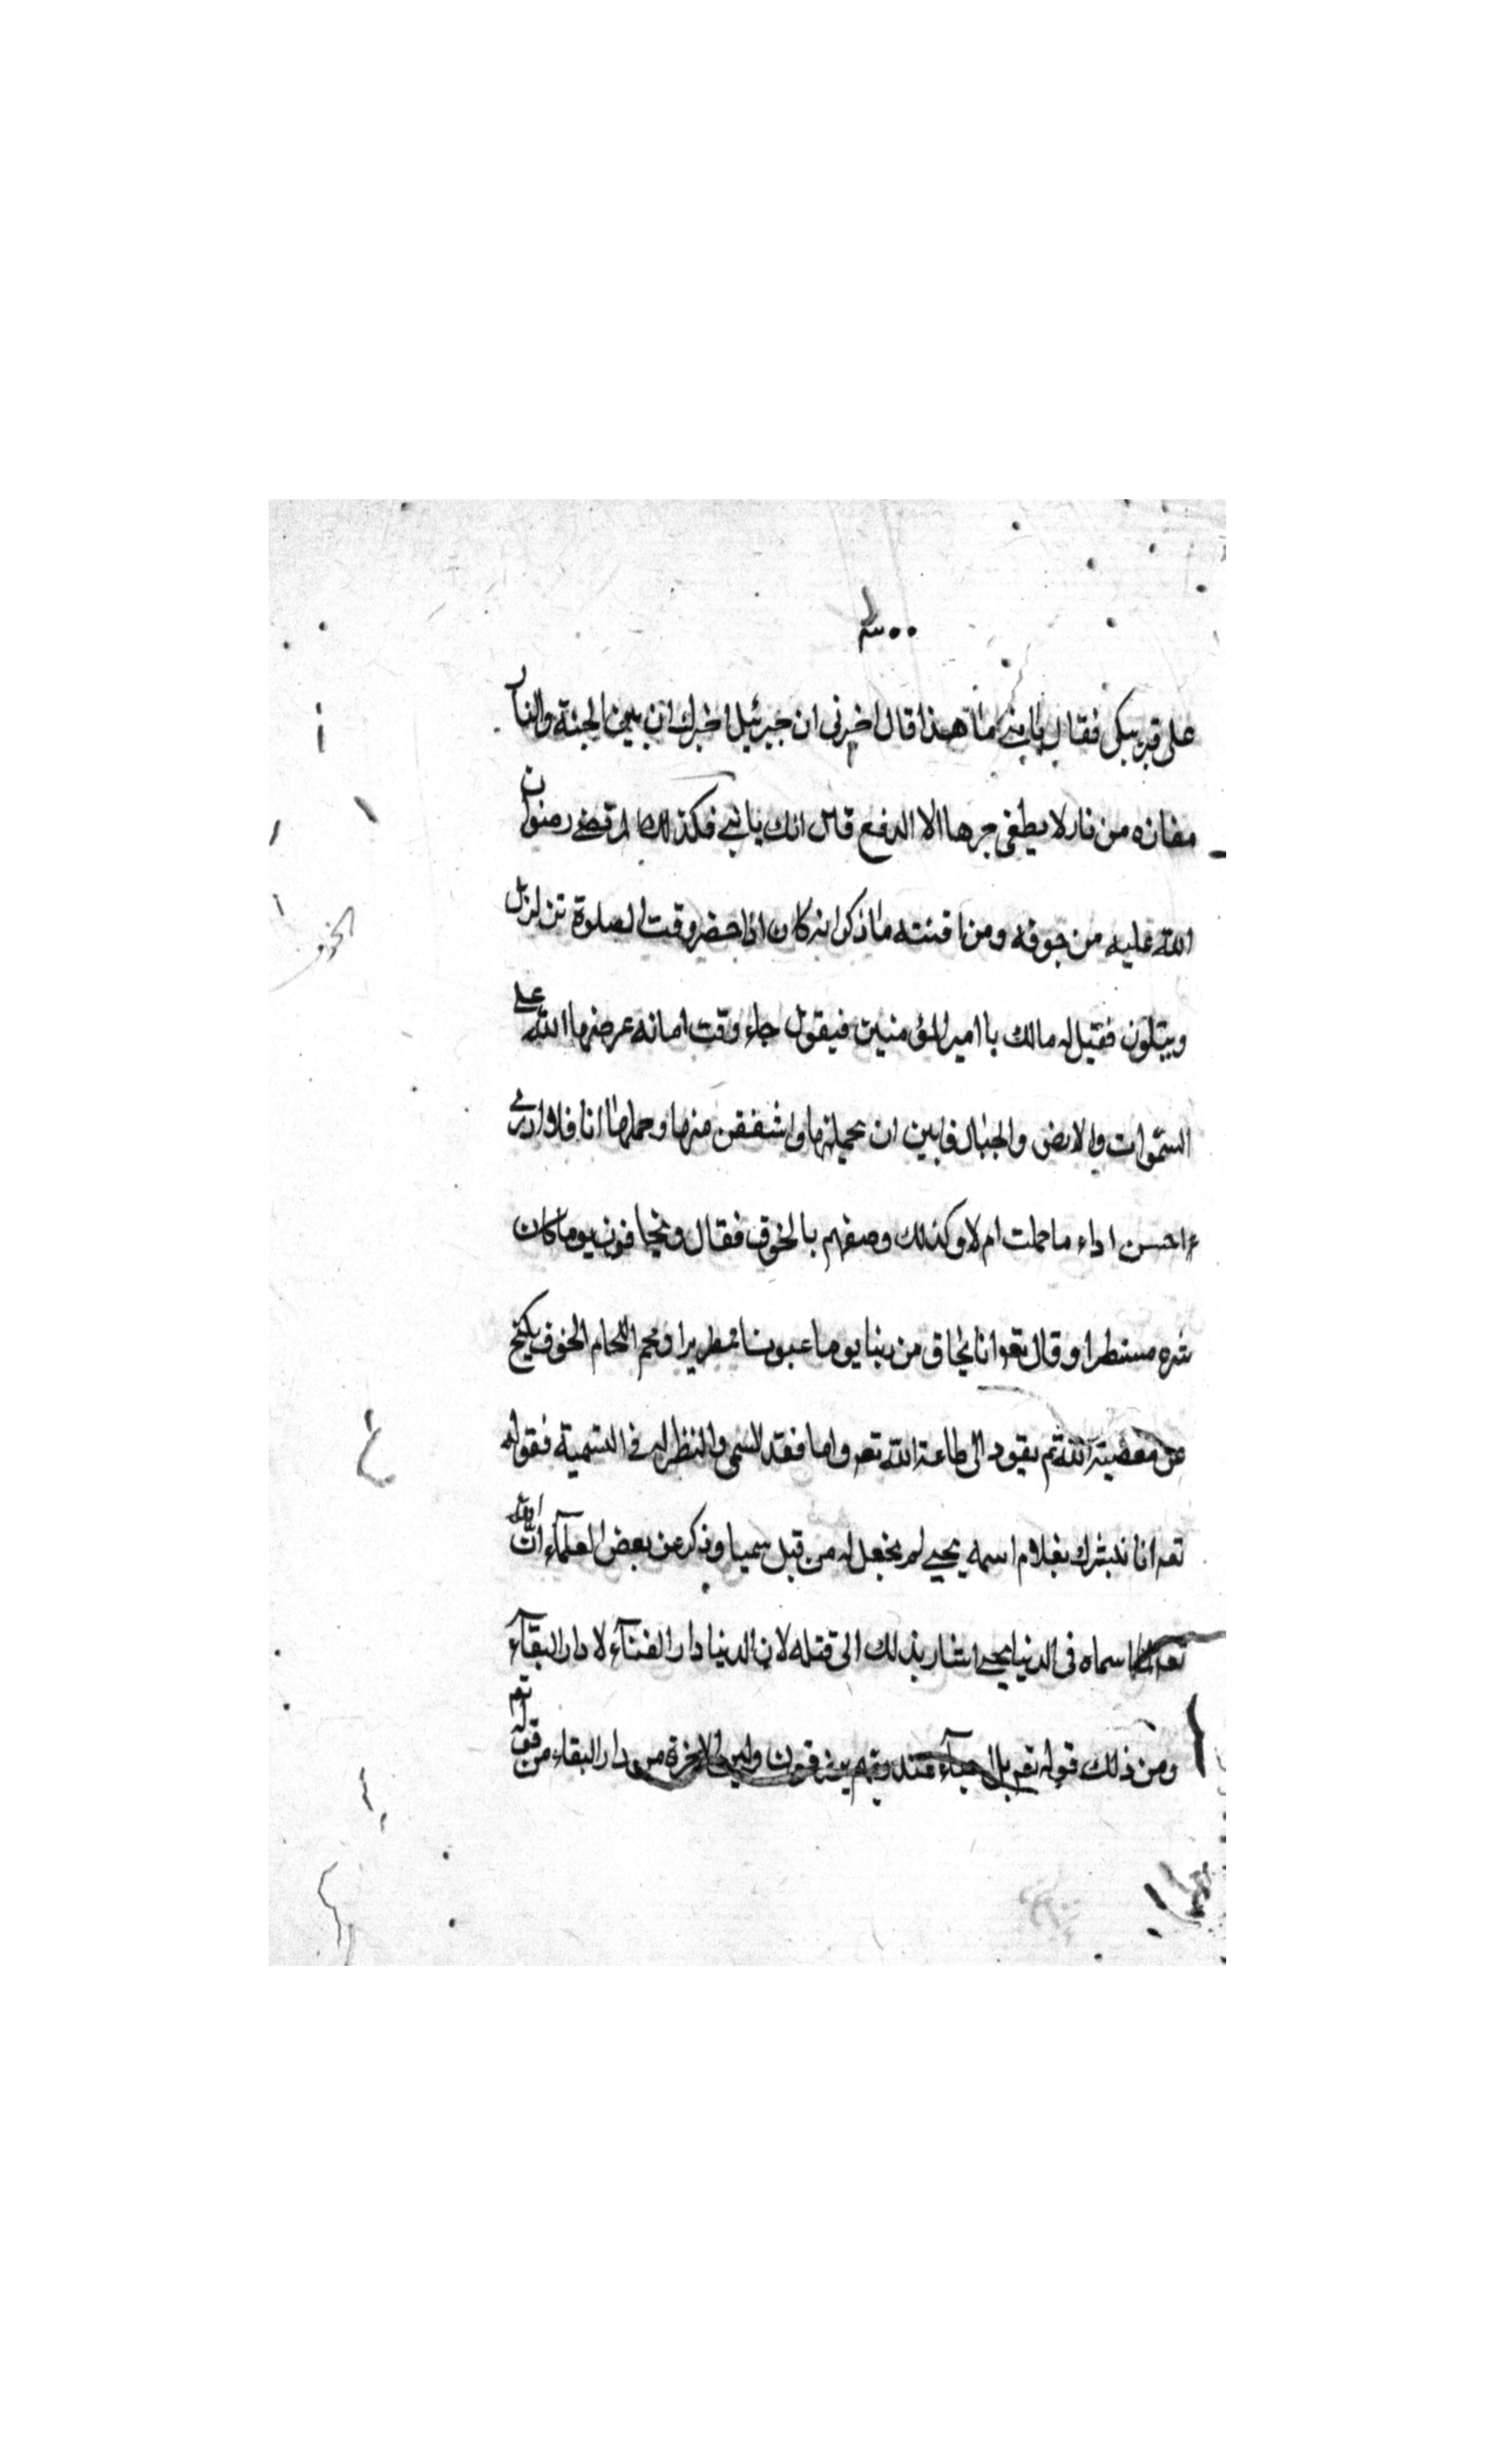 على قبر يبكى فقال يا بنى ما هذا قال اخبرنى ان جبرئيل اخبرك ان بين الجنة والنار
مفازه من نار لا يطفى حرها الا الدمع قال ابك يا بنى فكذلك المرتضى رضوان
الله عليه من خوفه ومن اقنته ما ذكر انه كان اذا حضر وقت الصلوة تزلزل
ويتلون فقيل له مالك يا امير المؤمنين فيقول جاء وقت امانه عرضها الله على
السموات والارض والجبال فابين ان يحملنها واشفقن منها وحملها انا فلا ادرى
ءاحسن اداء ما حملت ام لا وكذلك وصفهم بالخوف فقال ويخافون يوما كان
شره مستطيرا وقال تعوا نا نخاف من ربنا يوما عبوسا قمطريرا ونعم اللجام الخوف يكبح
عن معصية الله ثم يقود الى طاعة الله تعه واما فقد السمى والنظير له فى التسمية فقوله
تعه انا نبشرك بغلام اسمه يحيى لم نجعل له من قبل سميا وذكر عن بعض العلمآء ان الله
تعه لما سماه فى الدنيا يحيى اشار بذلك الى قتله لان الدنيا دار الفنآء لا دار البقآء
ومن ذلك قوله تعه بل احيآء عند ربهم يرزقون وليس الاخرة من دار البقاء من قوله تعه